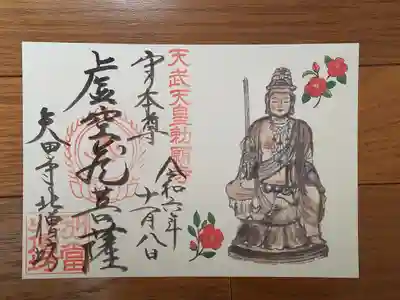 天武天皇勅願寺
守本尊
令和六年
十一月八日
虚空蔵菩薩
矢田寺北僧坊